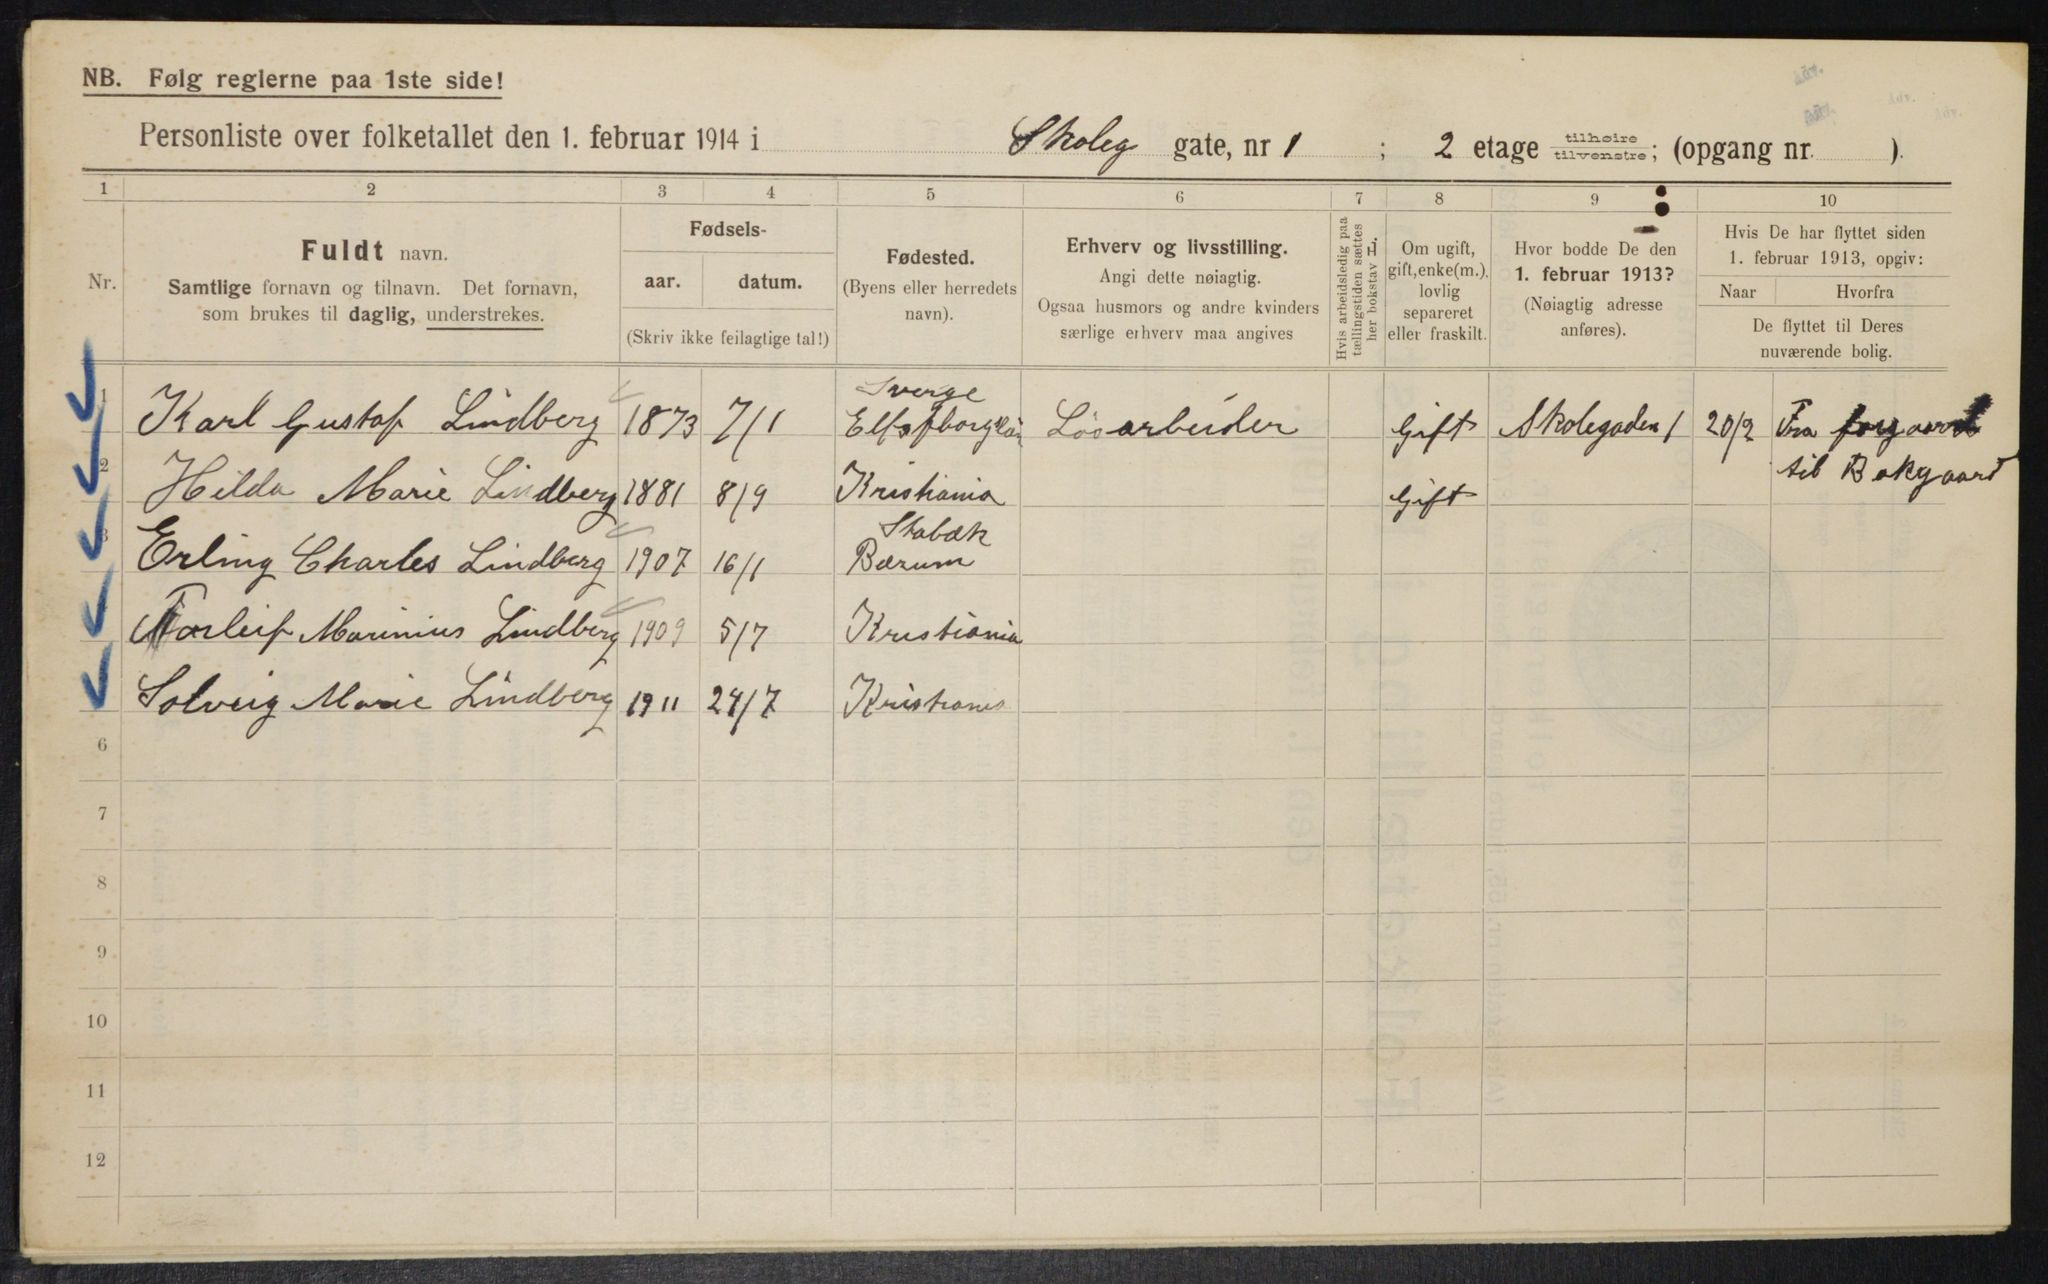 NB. Følg reglerne paa 1ste side!
Personliste over folketallet den 1. februar 1914 i Skoleg gate, nr 1 ; 2 etage tilhøire tilvenstre; (opgang nr. ).
1 2 3 4 5 6 7 8 9 10
Nr.
Fuldt navn.
Samtlige fornavn og tilnavn. Det fornavn,
som brukes til daglig, understrekes.
Fødsels-
aar. datum.
(Skriv ikke feilagtige tal!)
Fødested.
(Byens eller herredets
navn).
Erhverv og livsstilling.
Angi dette nøiagtig.
Ogsaa husmors og andre kvinders
særlige erhverv maa angives
Hvis arbeidsledig paa
tællingstiden sættes
her bokstav L.
Om ugift,
gift, enke(m.),
lovlig
separeret
eller fraskilt.
Hvor bodde De den
1. februar 1913?
(Nøiagtig adresse
anføres).
Hvis De har flyttet siden
1. februar 1913, opgiv:
Naar Hvorfra
De flyttet til Deres
nuværende bolig.
Sverge
1 Karl Gustaf Lindberg 1873 7/1 Gift Skolegaden 1 20/2 Fra forgaard
2 Hilda Marie Lindberg 1881 8/9 Kristiania Gift til Bakgaard
Stabæk
3 Erling Charles Lindberg 1907 16/1 Bærum
Torleif Marinius Lindberg 1909 5/7 Kristiania
Solveig Marie Lindberg 1911 24/7 Kristiania
6
7
8
9
10
11
12